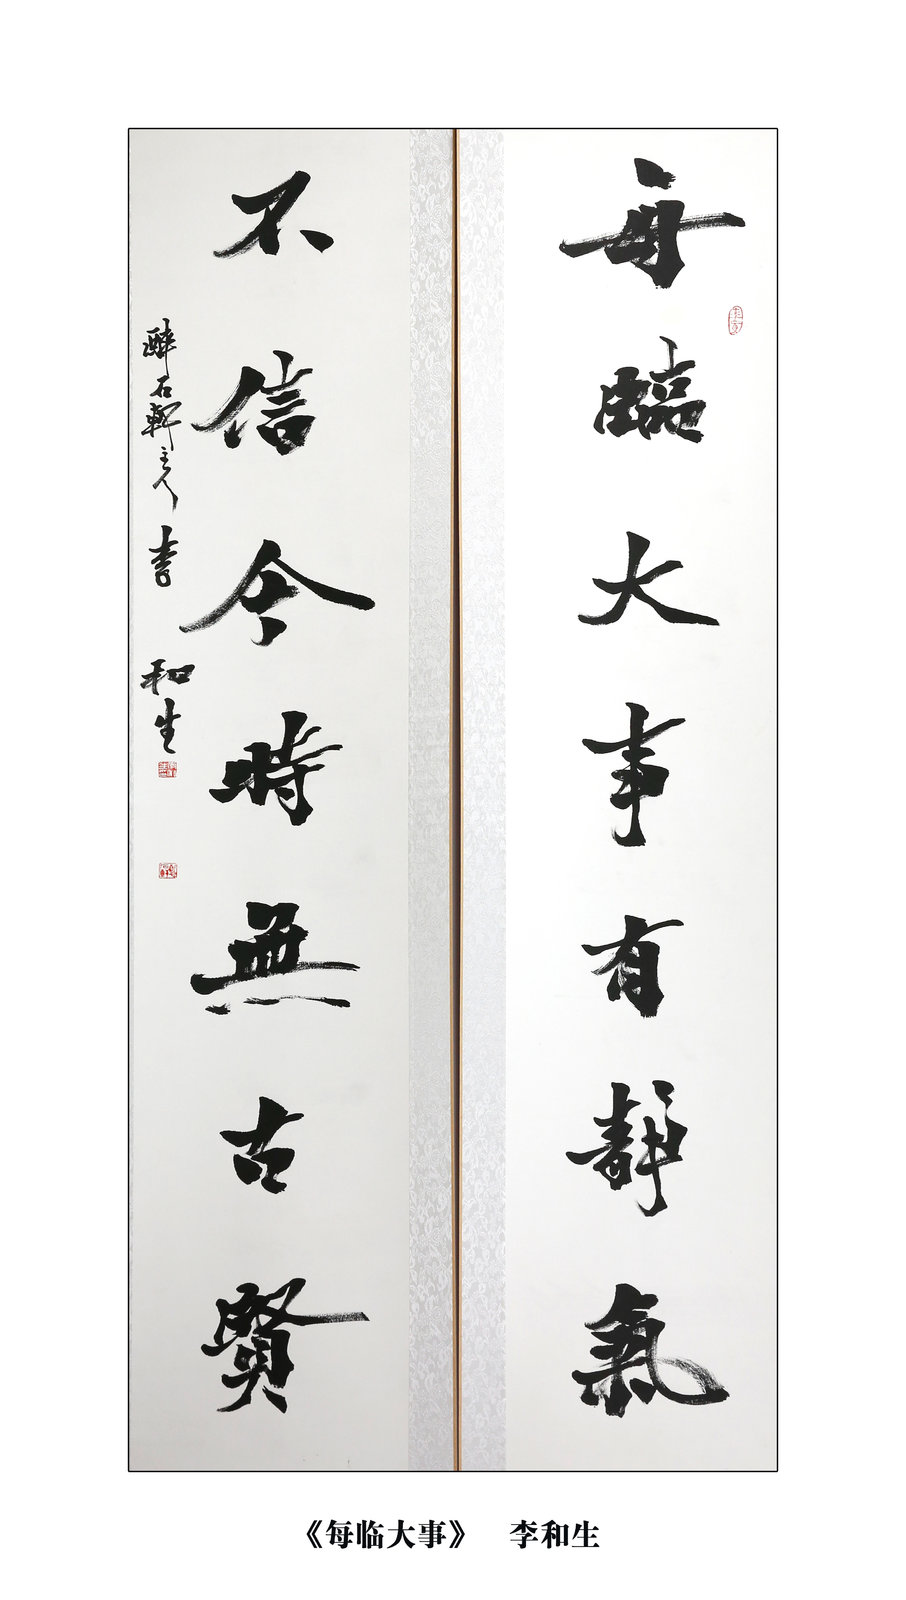 每臨大事有靜氣
不信今時無古賢
醉石軒主人李和生
《每临大事》 李和生